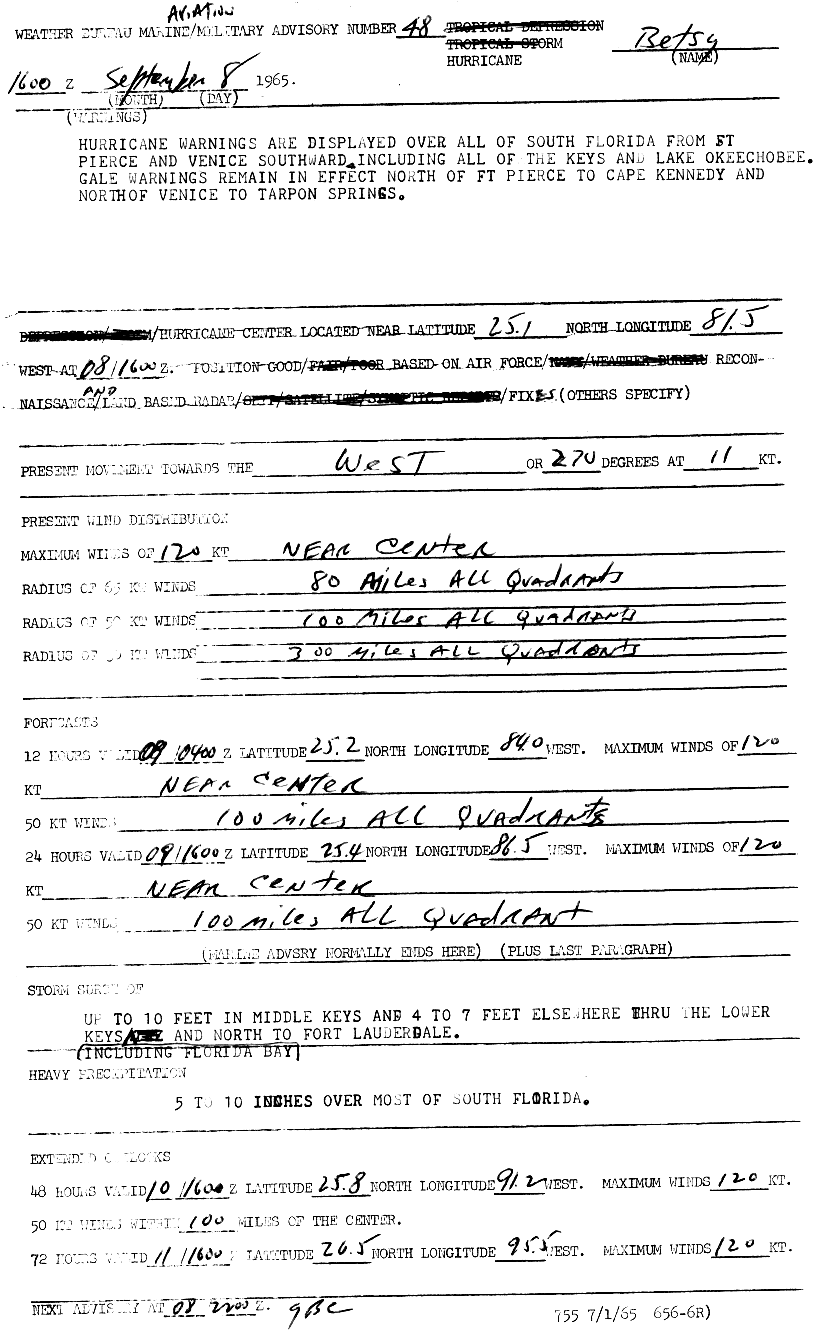 AVIATION
WEATHER BUREAU MARINE/MILITARY ADVISORY NUMBER 48 TROPICAL DEPRESSION
TROPICAL STORM Betsy
HURRICANE (NAME)
1600 Z September 8 1965.
(MONTH) (DAY)
(WARNINGS)
HURRICANE WARNINGS ARE DISPLAYED OVER ALL OF SOUTH FLORIDA FROM FT
PIERCE AND VENICE SOUTHWARD INCLUDING ALL OF THE KEYS AND LAKE OKEECHOBEE.
GALE WARNINGS REMAIN IN EFFECT NORTH OF FT PIERCE TO CAPE KENNEDY AND
NORTHOF VENICE TO TARPON SPRINGS.
DEPRESSION/STORM/HURRICANE CENTER LOCATED NEAR LATITUDE 25.1 NORTH LONGITUDE 81.5
WEST AT 08/1600 Z. POSITION GOOD/FAIR/POOR BASED ON AIR FORCE/NAVY/WEATHER BUREAU RECON-
AND
NAISSANCE/LAND BASED RADAR/SHIP/SATELLITE/SYNOPTIC REPORTS/FIXES (OTHERS SPECIFY)
PRESENT MOVEMENT TOWARDS THE WeST OR 270 DEGREES AT 11 KT.
PRESENT WIND DISTRIBUTION
MAXIMUM WINDS OF 120 KT NEAR CeNteR
RADIUS OF 65 KT WINDS 80 Miles ALL QuadRAnts
RADIUS OF 50 KT WINDS 100 Miles ALL QuadRAnts
RADIUS OF KT WINDS 300 miles ALL QuadRants
FORECASTS
12 HOURS VALID 09/0400 Z LATITUDE 25.2 NORTH LONGITUDE 84.0 WEST. MAXIMUM WINDS OF 120
KT NEAR CeNteR
50 KT WINDS 100 miles ALL QuadRAnts
24 HOURS VALID 09/1600 Z LATITUDE 25.4 NORTH LONGITUDE 86.5 WEST. MAXIMUM WINDS OF 120
KT NEAR CeNteR
50 KT WINDS 100 miles ALL QuadRAnt
(MARINE ADVSRY NORMALLY ENDS HERE) (PLUS LAST PARAGRAPH)
STORM SURGE OF
UP TO 10 FEET IN MIDDLE KEYS AND 4 TO 7 FEET ELSEWHERE THRU THE LOWER
KEYS AND NORTH TO FORT LAUDERDALE.
(INCLUDING FLORIDA BAY)
HEAVY PRECIPITATION
5 TO 10 INCHES OVER MOST OF SOUTH FLORIDA.
EXTENDED OUTLOOKS
48 HOURS VALID 10/1600 Z LATITUDE 25.8 NORTH LONGITUDE 91.2 WEST. MAXIMUM WINDS 120 KT.
50 KT WINDS WITHIN 100 MILES OF THE CENTER.
72 HOURS VALID 11/1600 Z LATITUDE 26.5 NORTH LONGITUDE 95.5 WEST. MAXIMUM WINDS 120 KT.
NEXT ADVISORY AT 08 2200 Z. gBC
755 7/1/65 656-6R)